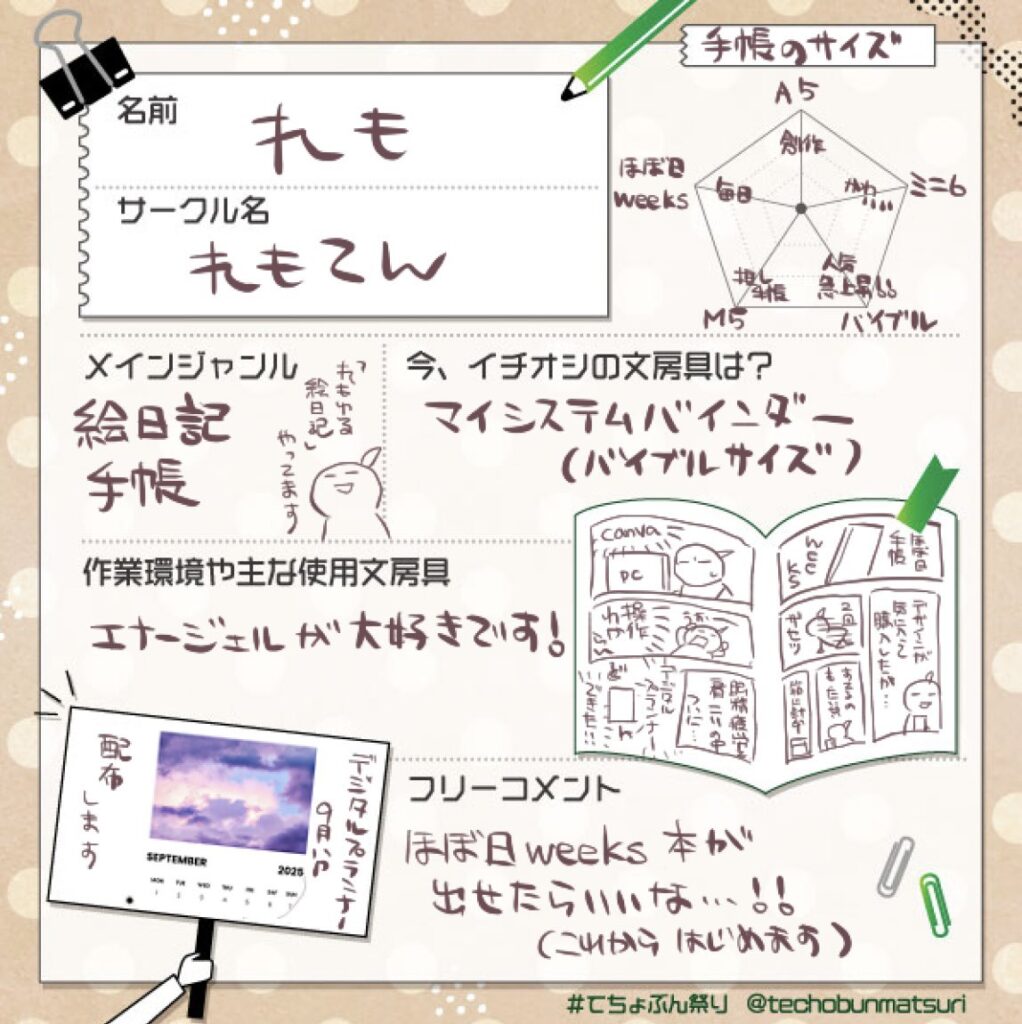 手帳のサイズ
名前
れも
サークル名
れもてん
A5
創作
ほぼ日
weeks
毎日
かわ...
ミニ6
推し
手帳
人気
急上昇!!
M5
バイブル
メインジャンル
絵日記
手帳
「れもゆる
絵日記」
やってます
今、イチオシの文房具は?
マイシステムバインダー
(バイブルサイズ)
作業環境や主な使用文房具
エナージェルが大好きです!
canva
PC
操作
デジタル
プランナー
できたい
眼精疲労
肩こりの中
ついに…
ほぼ日
手帳
weeks
デザインが
気に入って
購入したが…
2回
ザセツ
あるのも
箱に封印
デジタルプランナー
9月〜
配布
します
SEPTEMBER
2025
MON TUE WED THU FRI SAT SUN
1 2 3 4 5 6 7
フリーコメント
ほぼ日weeks本が
出せたらいいな…!!
(これからはじめます)
#てちょぶん祭り @techobunmatsuri